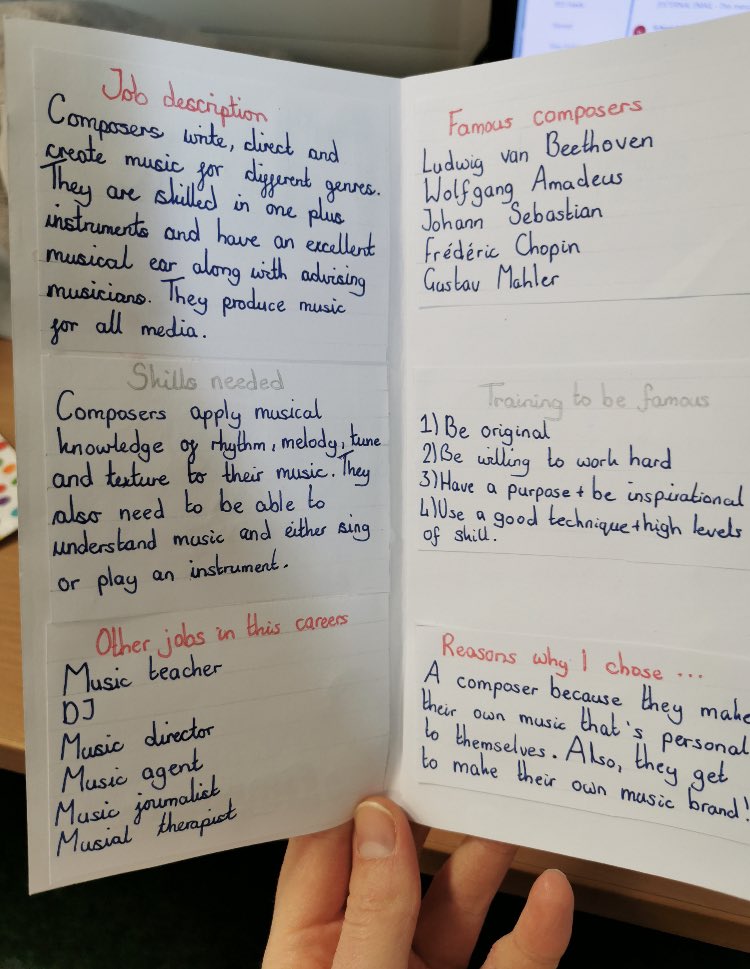 Job description
Composers write, direct and
create music for different genres.
They are skilled in one plus
instruments and have an excellent
musical ear along with advising
musicians. They produce music
for all media.
Skills needed
Composers apply musical
knowledge of rhythm, melody, tune
and texture to their music. They
also need to be able to
understand music and either sing
or play an instrument.
Other jobs in this careers
Music teacher
DJ
Music director
Music agent
Music journalist
Musial therapist
Famous composers
Ludwig van Beethoven
Wolfgang Amadeus
Johann Sebastian
Frédéric Chopin
Gustav Mahler
Training to be famous
1) Be original
2) Be willing to work hard
3) Have a purpose + be inspirational
4) Use a good technique + high levels
of skill.
Reasons why I chose ...
A composer because they make
their own music that's personal
to themselves. Also, they get
to make their own music brand!